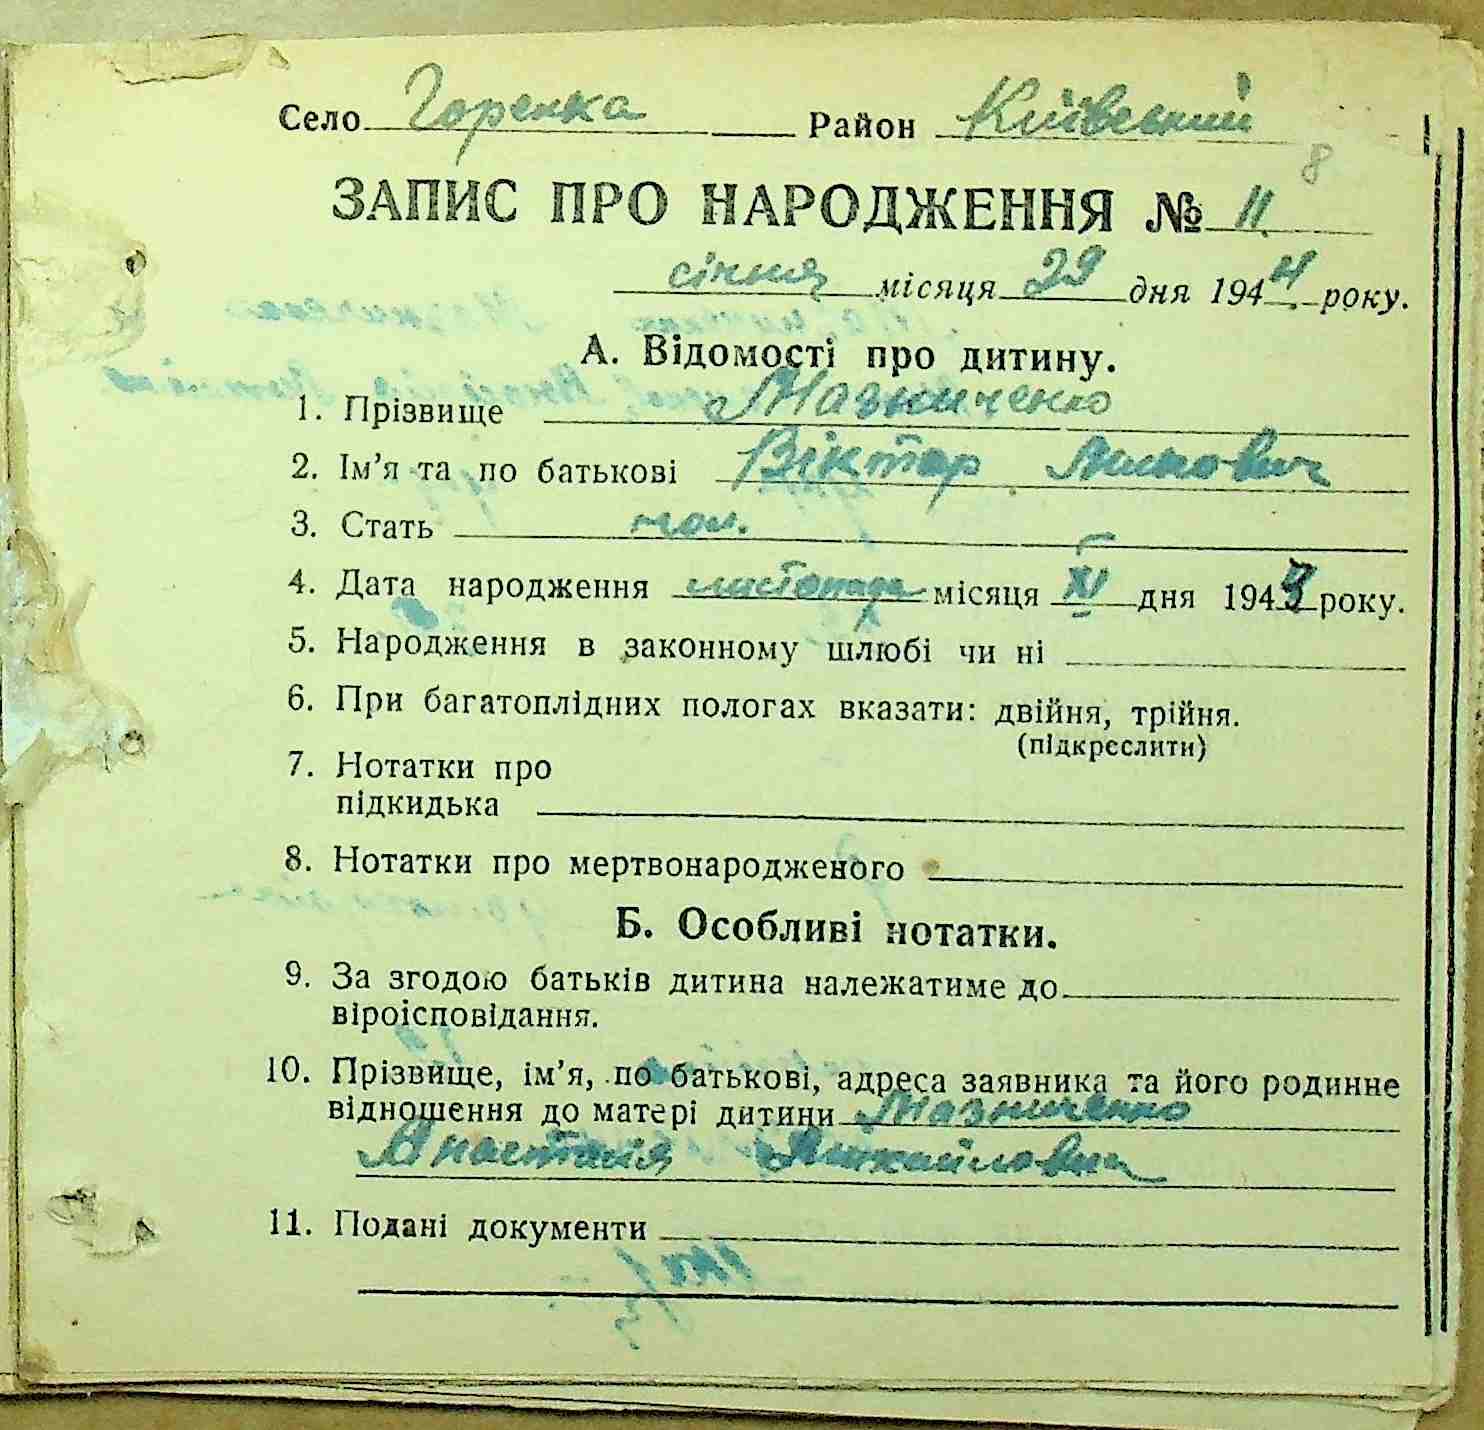 Село Горенка Район Київський
8
ЗАПИС ПРО НАРОДЖЕННЯ № 11
січня місяця 29 дня 1944 року.
А. Відомості про дитину.
1. Прізвище Мазниченко
2. Ім’я та по батькові Віктор
3. Стать чол.
4. Дата народження листопада місяця XI дня 1943 року.
5. Народження в законному шлюбі чи ні
6. При багатоплідних пологах вказати: двійня, трійня.
(підкреслити)
7. Нотатки про
підкидька
8. Нотатки про мертвонародженого
Б. Особливі нотатки.
9. За згодою батьків дитина належатиме до
віроісповідання.
10. Прізвище, ім’я, по батькові, адреса заявника та його родинне
відношення до матері дитини Мазниченко
Анастасія Михайловна
11. Подані документи